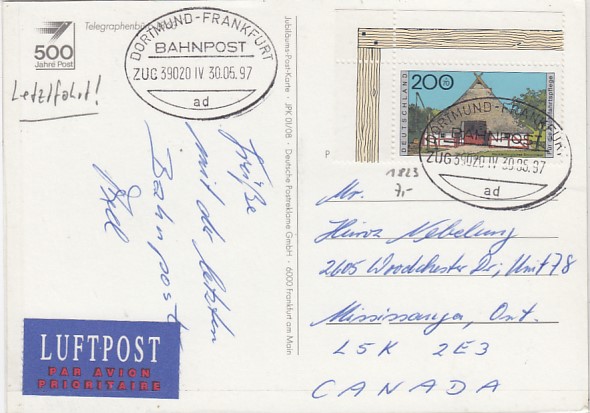 500
Jahre Post
Telegraphenbü
DORTMUND-FRANKFURT
BAHNPOST
ZUG 39020 IV 30.05.97
ad
Letztfahrt!
Grüße
mit der letzten
Bahnpost
Axel
LUFTPOST
PAR AVION
PRIORITAIRE
Jubiläums-Post-Karte · JPK 01/08 · Deutsche Postreklame GmbH · 6000 Frankfurt am Main
200
DEUTSCHLAND
Für die Wohlfahrtspflege
P
DORTMUND-FRANKFURT
BAHNPOST
ZUG 39020 IV 30.05.97
ad
1823
7,-
Mr.
Heinz Nebelung
2605 Woodchester Dr; Unit 78
Mississauga, Ont.
L5K 2E3
CANADA